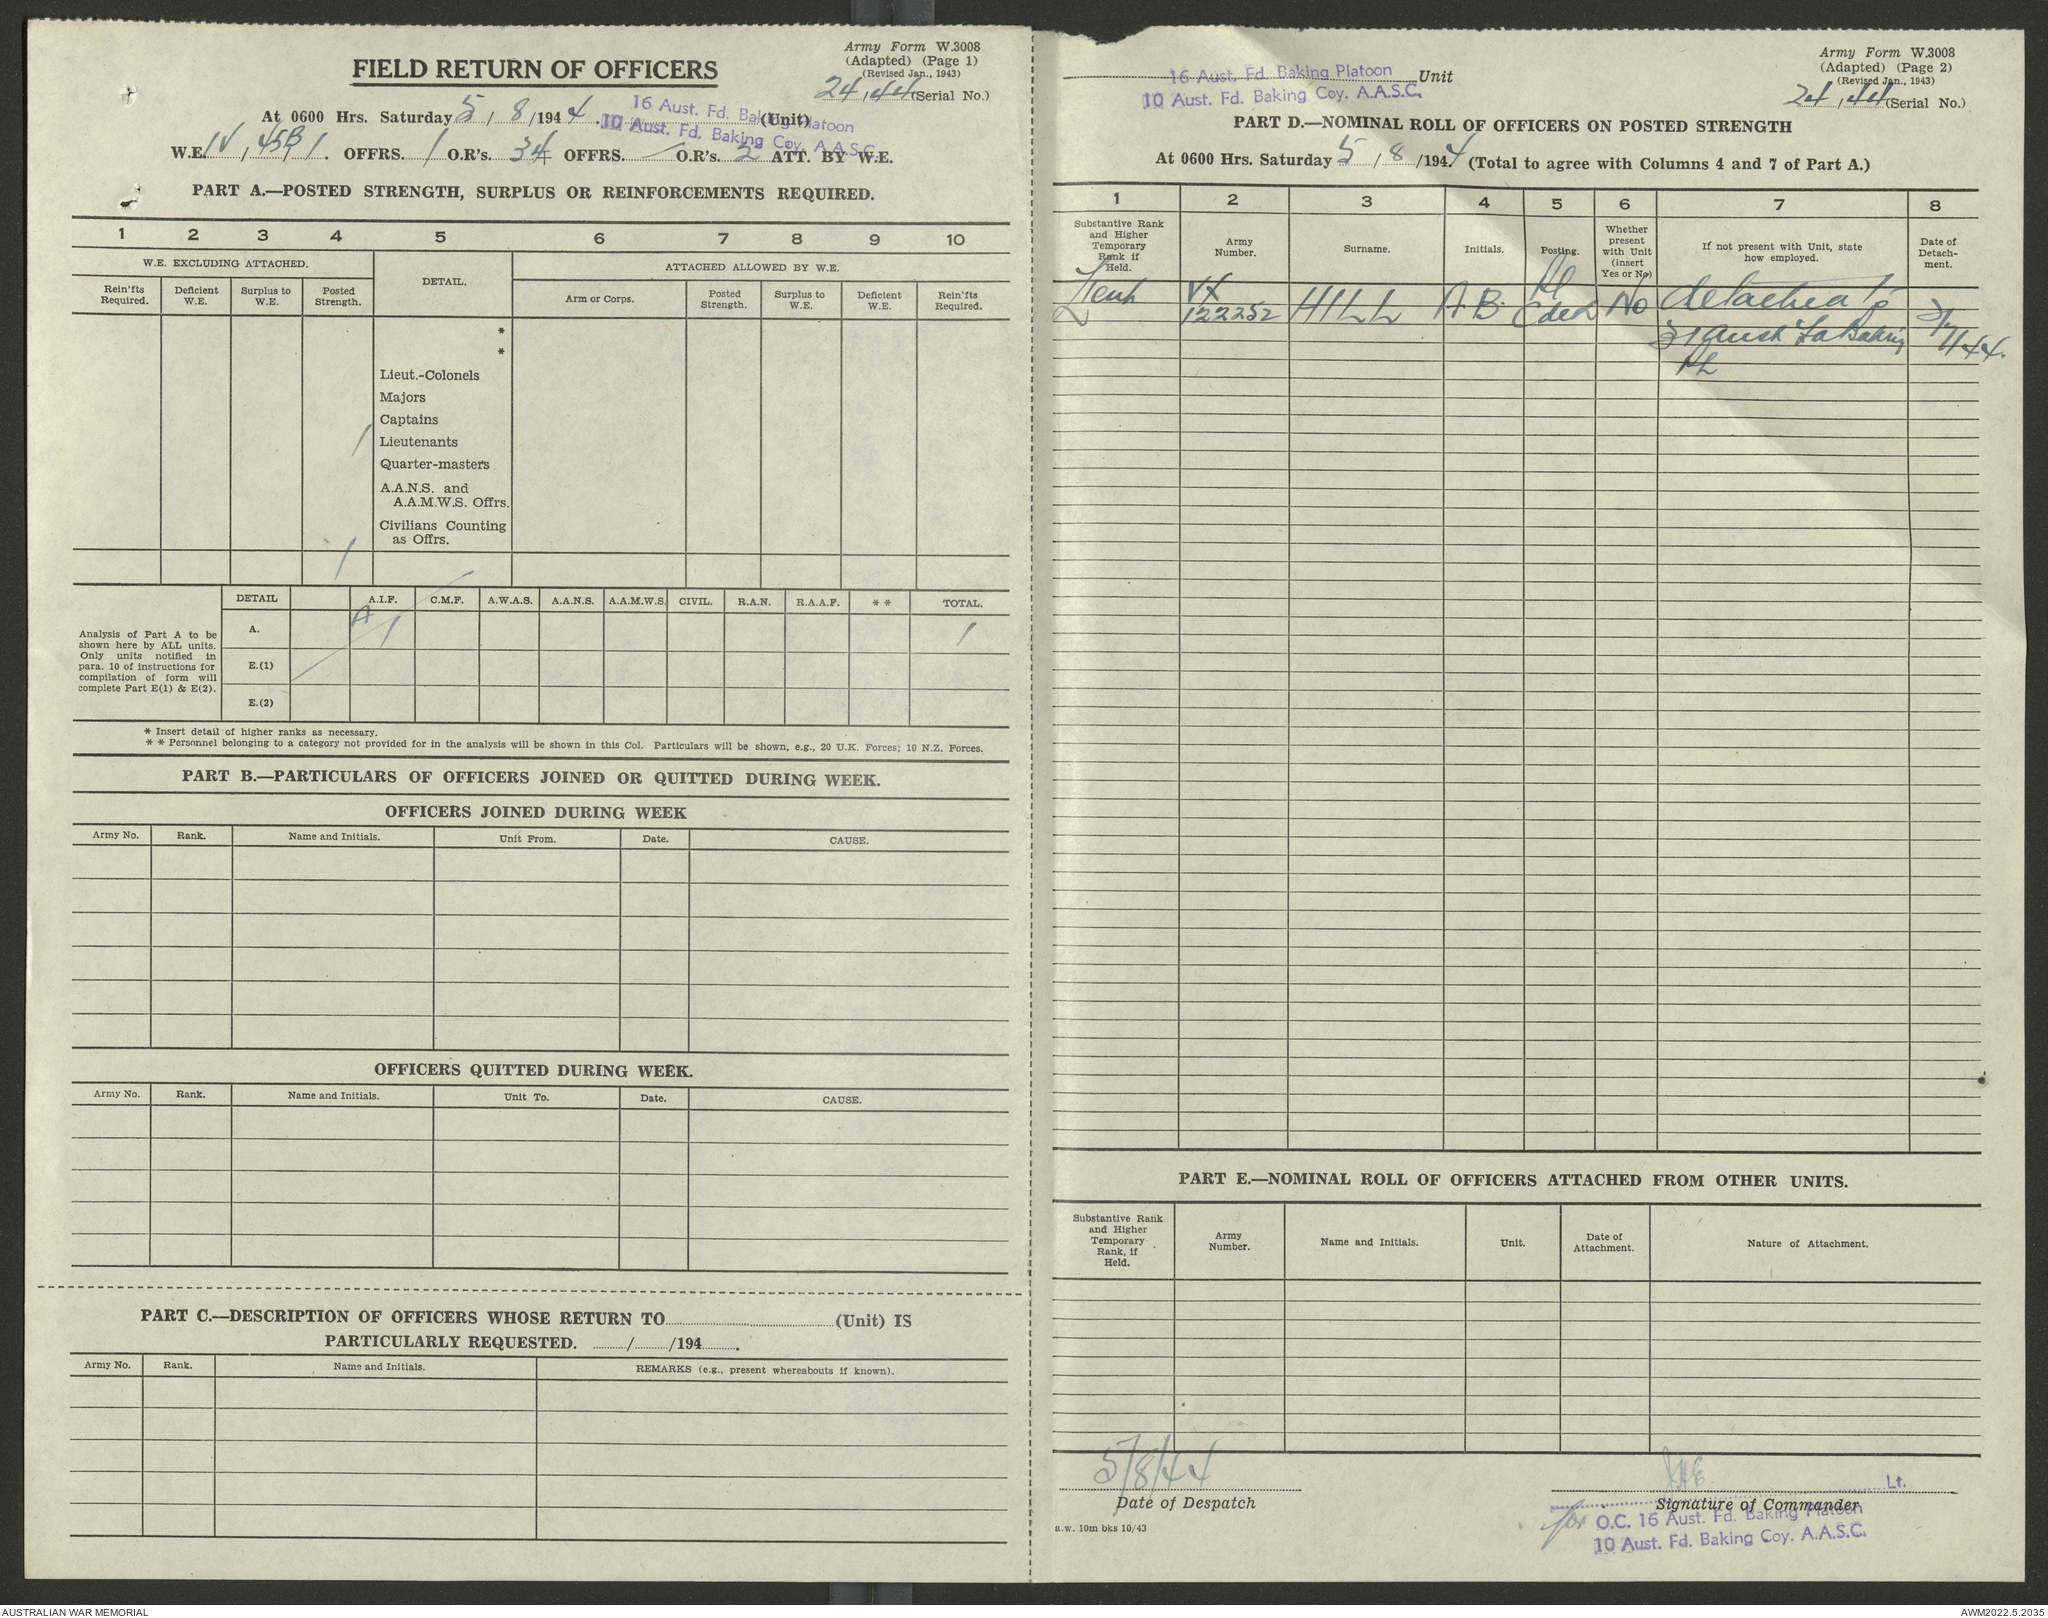 Army Form W.3008
(Adapted) (Page 1)
(Revised Jan., 1943)
FIELD RETURN OF OFFICERS
24,44 (Serial No.)
At 0600 Hrs. Saturday 5/8/1944. 16 Aust. Fd. Baking Platoon (Unit)
10 Aust. Fd. Baking Coy. A.A.S.C.
W.E. IV, 45B/1. OFFRS. 1 O.R's. 34 OFFRS. / O.R's. 2 ATT. BY W.E.
PART A.—POSTED STRENGTH, SURPLUS OR REINFORCEMENTS REQUIRED.
1 2 3 4 5 6 7 8 9 10
W.E. EXCLUDING ATTACHED. DETAIL. ATTACHED ALLOWED BY W.E.
Rein'fts Required. Deficient W.E. Surplus to W.E. Posted Strength. Arm or Corps. Posted Strength. Surplus to W.E. Deficient W.E. Rein'fts Required.
*
*
Lieut.-Colonels
Majors
Captains
1 Lieutenants
Quarter-masters
A.A.N.S. and
A.A.M.W.S. Offrs.
Civilians Counting
as Offrs.
1
DETAIL A.I.F. C.M.F. A.W.A.S. A.A.N.S. A.A.M.W.S. CIVIL. R.A.N. R.A.A.F. * * TOTAL.
A. A 1 1
E.(1)
E.(2)
Analysis of Part A to be
shown here by ALL units.
Only units notified in
para. 10 of instructions for
compilation of form will
complete Part E(1) & E(2).
* Insert detail of higher ranks as necessary.
* * Personnel belonging to a category not provided for in the analysis will be shown in this Col. Particulars will be shown, e.g., 20 U.K. Forces; 10 N.Z. Forces.
PART B.—PARTICULARS OF OFFICERS JOINED OR QUITTED DURING WEEK.
OFFICERS JOINED DURING WEEK
Army No. Rank. Name and Initials. Unit From. Date. CAUSE.
OFFICERS QUITTED DURING WEEK.
Army No. Rank. Name and Initials. Unit To. Date. CAUSE.
PART C.—DESCRIPTION OF OFFICERS WHOSE RETURN TO (Unit) IS
PARTICULARLY REQUESTED. / /194 .
Army No. Rank. Name and Initials. REMARKS (e.g., present whereabouts if known).
Army Form W.3008
(Adapted) (Page 2)
(Revised Jan., 1943)
16 Aust. Fd. Baking Platoon Unit
10 Aust. Fd. Baking Coy. A.A.S.C.
24,44 (Serial No.)
PART D.—NOMINAL ROLL OF OFFICERS ON POSTED STRENGTH
At 0600 Hrs. Saturday 5/8/1944. (Total to agree with Columns 4 and 7 of Part A.)
1 2 3 4 5 6 7 8
Substantive Rank and Higher Temporary Rank if Held. Army Number. Surname. Initials. Posting. Whether present with Unit (insert Yes or No) If not present with Unit, state how employed. Date of Detach-ment.
Lieut VX 122252 HILL A.B. Pl Cdr No detached to
31 Aust Fd Baking
Pl
3/7/44.
PART E.—NOMINAL ROLL OF OFFICERS ATTACHED FROM OTHER UNITS.
Substantive Rank and Higher Temporary Rank, if Held. Army Number. Name and Initials. Unit. Date of Attachment. Nature of Attachment.
5/8/44
Date of Despatch
Lt.
Signature of Commander
for O.C. 16 Aust. Fd. Baking Platoon
10 Aust. Fd. Baking Coy. A.A.S.C.
a.w. 10m bks 10/43
AUSTRALIAN WAR MEMORIAL
AWM2022.5.2035